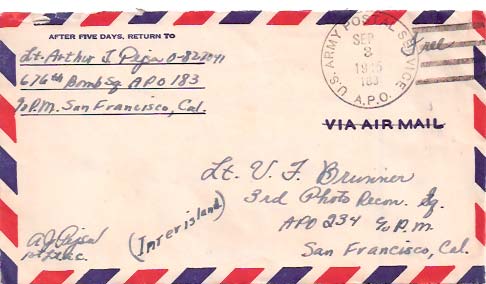 AFTER FIVE DAYS, RETURN TO
Lt. Arthur J. Pejsa O-827041
676th Bomb Sq. APO 183
c/o P.M. San Francisco, Cal.
U.S. ARMY POSTAL SERVICE
SEP
3
1945
183
A.P.O.
Free
VIA AIR MAIL
Lt. V. F. Brunner
3rd Photo Recon. Sq.
APO 234 c/o P.M.
San Francisco, Cal.
(Inter island)
A J Pejsa